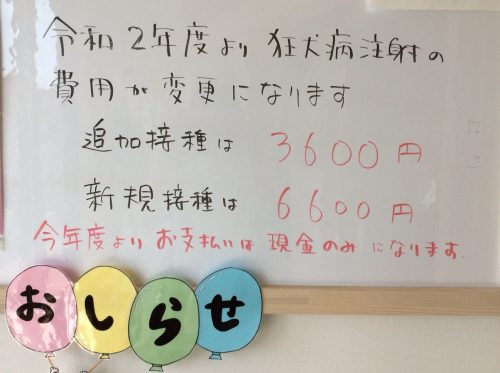 令和2年度より狂犬病注射の
費用が変更になります
追加接種は 3600円
新規接種は 6600円
今年度よりお支払いは現金のみになります.
おしらせ